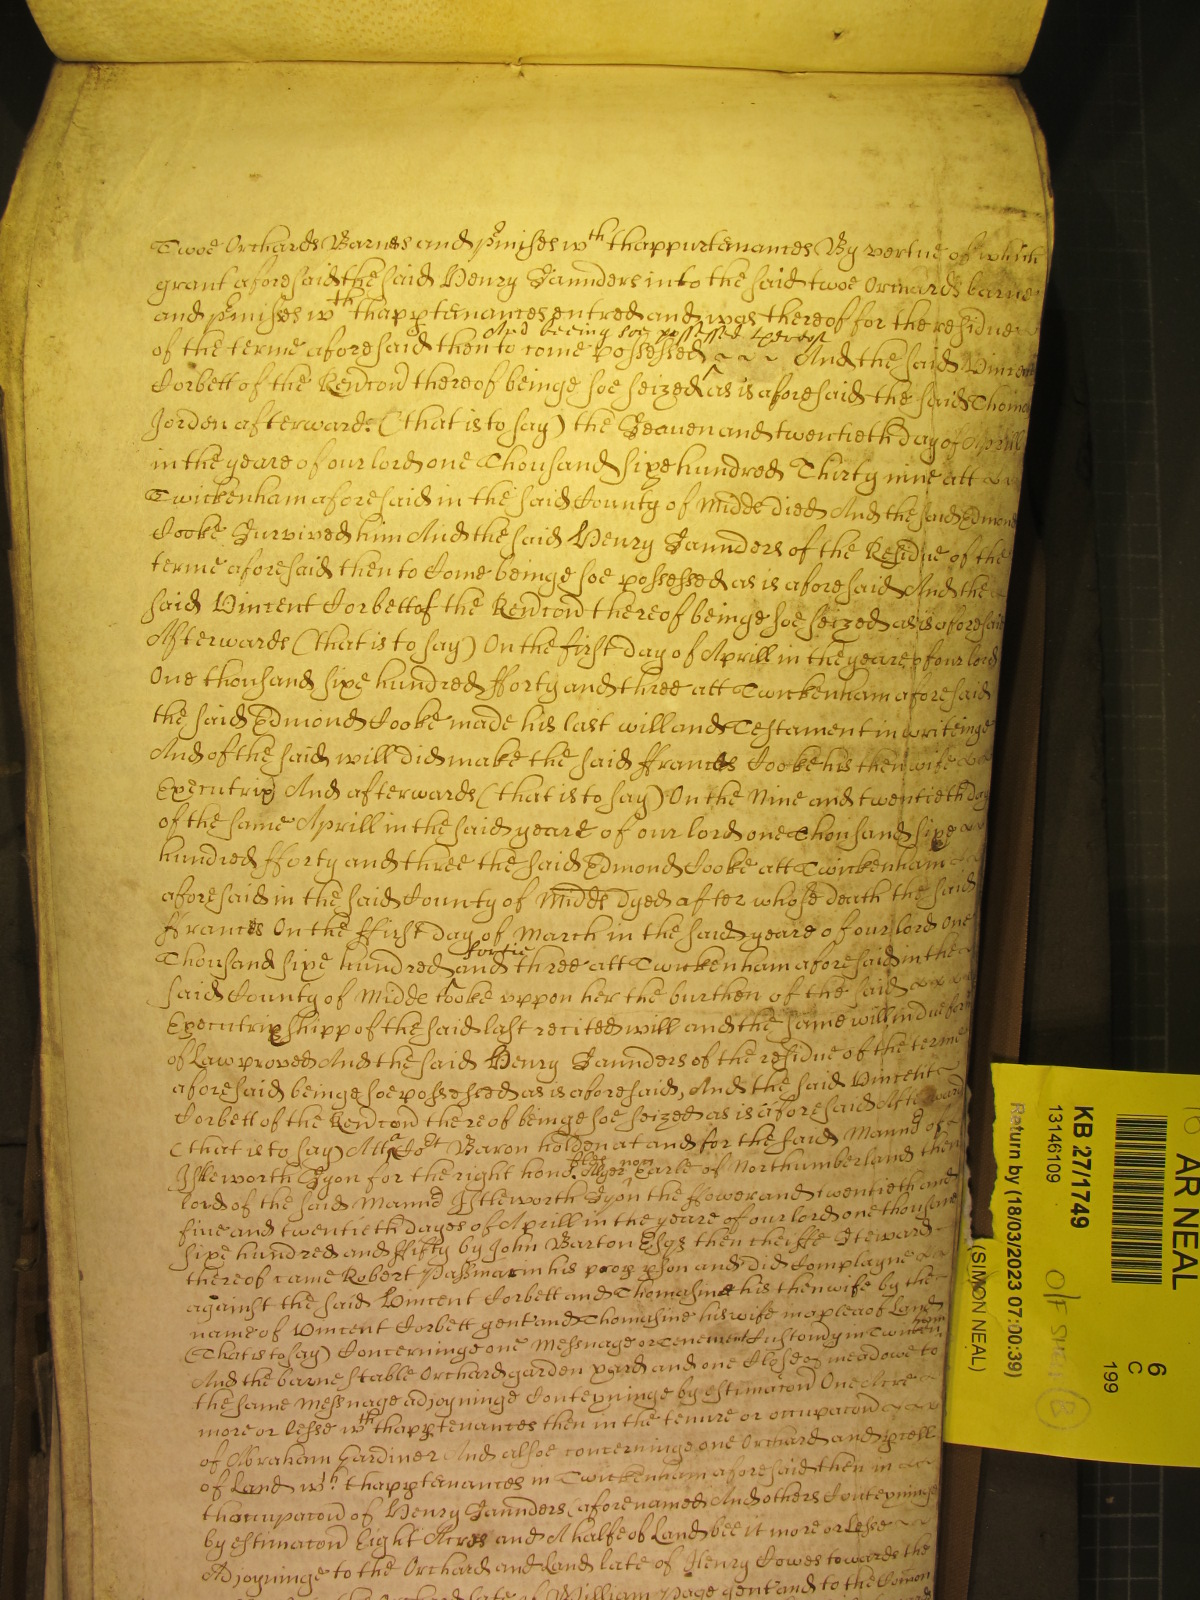 Twoe Orchards Barnes and p̄mises wth thappurtenances By vertue of which
grant aforesaid the said Henry Saunders into the said twoe Orchards barne
and p̄mises wth thapptenances entred and was thereof for the residue
of the terme aforesaid then to come possessed And the said Vincent
And beeing soe possessed thereof
Corbett of the Revercon thereof beinge soe seized as is aforesaid the said Thomas
Jorden afterward: (that is to say) the Seaven and twentieth day of Aprill
in the yeare of our lord one Thousand sixe hundred Thirty nine att
Twickenham aforesaid in the said County of Midds died And the said Edmond
Cooke Survived him And the said Henry Saunders of the Residue of the
terme aforesaid then to Come beinge soe possessed as is aforesaid And the
said Vincent Corbett of the Revercon thereof beinge soe seized as is aforesaid
Afterwards (that is to say) On the first day of Aprill in the yeare of our lord
One thousand sixe hundred fforty and three att Twickenham aforesaid
the said Edmond Cooke made his last will and Testament in writeinge
And of the said will did make the said ffrances Cooke his then wife
Executrix And afterwards (that is to say) On the Nine and twentieth day
of the same Aprill in the said yeare of our lord one Thousand sixe
hundred fforty and three the said Edmond Cooke att Twickenham
aforesaid in the said County of Midds dyed after whose death the said
ffrances On the ffirst day of March in the said yeare of our lord one
Thousand sixe hundred and three att Twickenham aforesaid in the
fortie
said County of Midds tooke uppon her the burthen of the said
Executrixshipp of the said last recited will and the same will in due forme
of Law proved And the said Henry Saunders of the residue of the terme
aforesaid beinge soe possessed as is aforesaid, And the said Vincent
Corbett of the Revercon thereof beinge soe seized as is aforesaid Afterward
(that is to say) Att a Cort Baron holden at and for the said Mannor of
Istleworth Syon for the right hono: Alger non Earle of Northumberland then
lord of the said Mannor Istleworth Syon the ffower and twentieth and
five and twentieth dayes of Aprill in the yeare of our lord one thousand
sixe hundred and ffifty by John Barton Esqr then cheiffe Steward
thereof came Robert Passmar in his prop pson and did Complayne
against the said Vincent Corbett and Thomasine his then wife by the
name of Vincent Corbett gent and Thomasine his wife in a plea of Land
(That is to say) Concerninge one Messuage or Tenement Customary in Twicken
ham
And the barne stable Orchard garden yard and one Close of meadowe to
the same Messuage adjoyninge Conteyninge by estimacon One Acre
more or lesse wth thapptenances then in the tenure or occupacon
of Abraham Gardiner And alsoe concerninge one Orchard and pcell
of Land wth thapptenances in Twickenham aforesaid then in
thoccupacon of Henry Saunders aforenamed And others Conteyninge
by estimacon Eight Acres and A halfe of Land bee it more or Lesse
Adjoyninge to the Orchard and Land late of Henry Cowes towards the
Orchard late of William Page gent and to the Comon
AR NEAL
6
C
199
KB 27/1749
13146109
O/F SIZE
B
(SIMON NEAL)
Return by (18/03/2023 07:00:39)